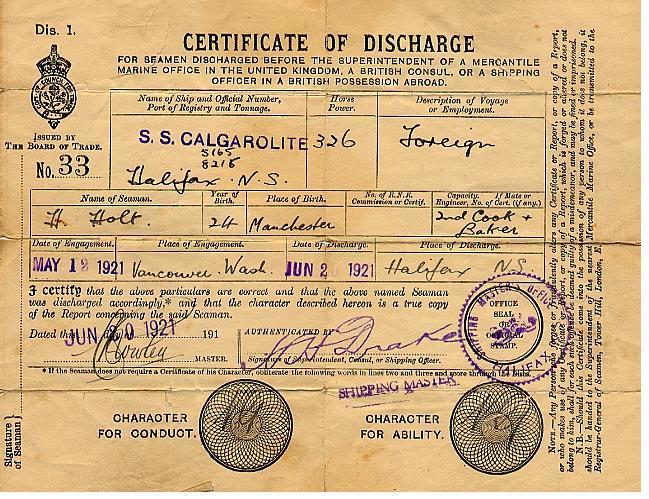 Dis. 1.
CERTIFICATE OF DISCHARGE
FOR SEAMEN DISCHARGED BEFORE THE SUPERINTENDENT OF A MERCANTILE
MARINE OFFICE IN THE UNITED KINGDOM, A BRITISH CONSUL, OR A SHIPPING
OFFICER IN A BRITISH POSSESSION ABROAD.
ISSUED BY
THE BOARD OF TRADE.
No. 33
Name of Ship and Official Number,
Port of Registry and Tonnage.
Horse
Power.
Description of Voyage
or Employment.
S. S. CALGAROLITE
326
Foreign
5165
8218
Halifax. N.S
Name of Seaman.
Year of
Birth.
Place of Birth.
No. of R.N.R.
Commission or Certif.
Capacity. If Mate or
Engineer, No. of Cert. (if any).
H Holt.
24
Manchester
2nd Cook +
Baker
Date of Engagement.
Place of Engagement.
Date of Discharge.
Place of Discharge.
MAY 12 1921
Vancouver. Wash.
JUN 20 1921
Halifax N.S.
I certify that the above particulars are correct and that the above named Seaman
was discharged accordingly,* and that the character described hereon is a true copy
of the Report concerning the said Seaman.
Dated this
JUN 20 1921
191
AUTHENTICATED BY
MASTER.
Signature of Superintendent, Consul, or Shipping Officer.
SHIPPING MASTER
* If the Seaman does not require a Certificate of his Character, obliterate the following words in lines two and three and score through the Disks.
SHIPPING MASTER'S OFFICE
HALIFAX
OFFICE
SEAL
OR
OFFICIAL
STAMP.
CHARACTER
FOR CONDUCT.
CHARACTER
FOR ABILITY.
Signature
of Seaman
NOTE.—Any Person who forges or fraudulently alters any Certificate or Report, or copy of a Report,
or who makes use of any Certificate or Report, or copy of a Report, which is forged or altered or does not
belong to him, shall for each such offence be deemed guilty of a misdemeanor, and may be fined or imprisoned.
N.B.—Should this Certificate come into the possession of any person to whom it does not belong, it
should be handed to the Superintendent of the nearest Mercantile Marine Office, or be transmitted to the
Registrar-General of Seamen, Tower Hill, London,